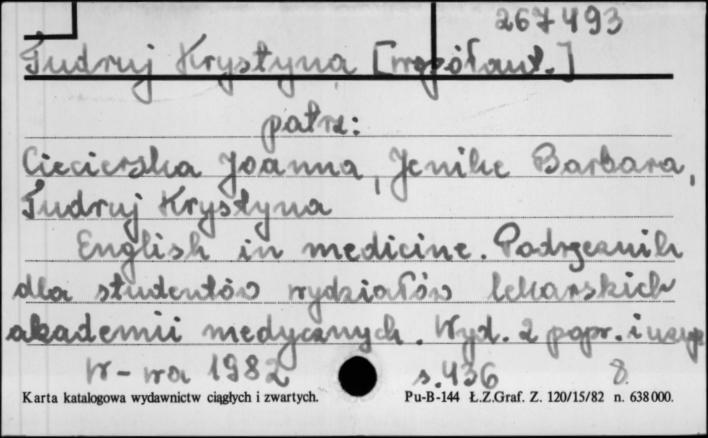 267493
Tudruj Krystyna [współaut.]
patrz:
Ciecierska Joanna, Jenike Barbara,
Tudruj Krystyna
English in medicine. Podręcznik
dla studentów wydziałów lekarskich
akademii medycznych. Wyd. 2 popr. i uzup
W-wa 1982 s. 436 8
Karta katalogowa wydawnictw ciągłych i zwartych. Pu-B-144 Ł.Z.Graf. Z. 120/15/82 n. 638000.